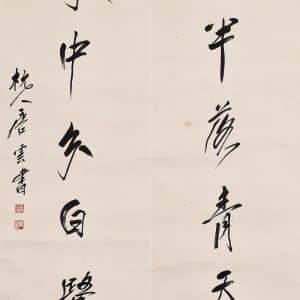 半落青天
中分白鷺
杭人唐雲書